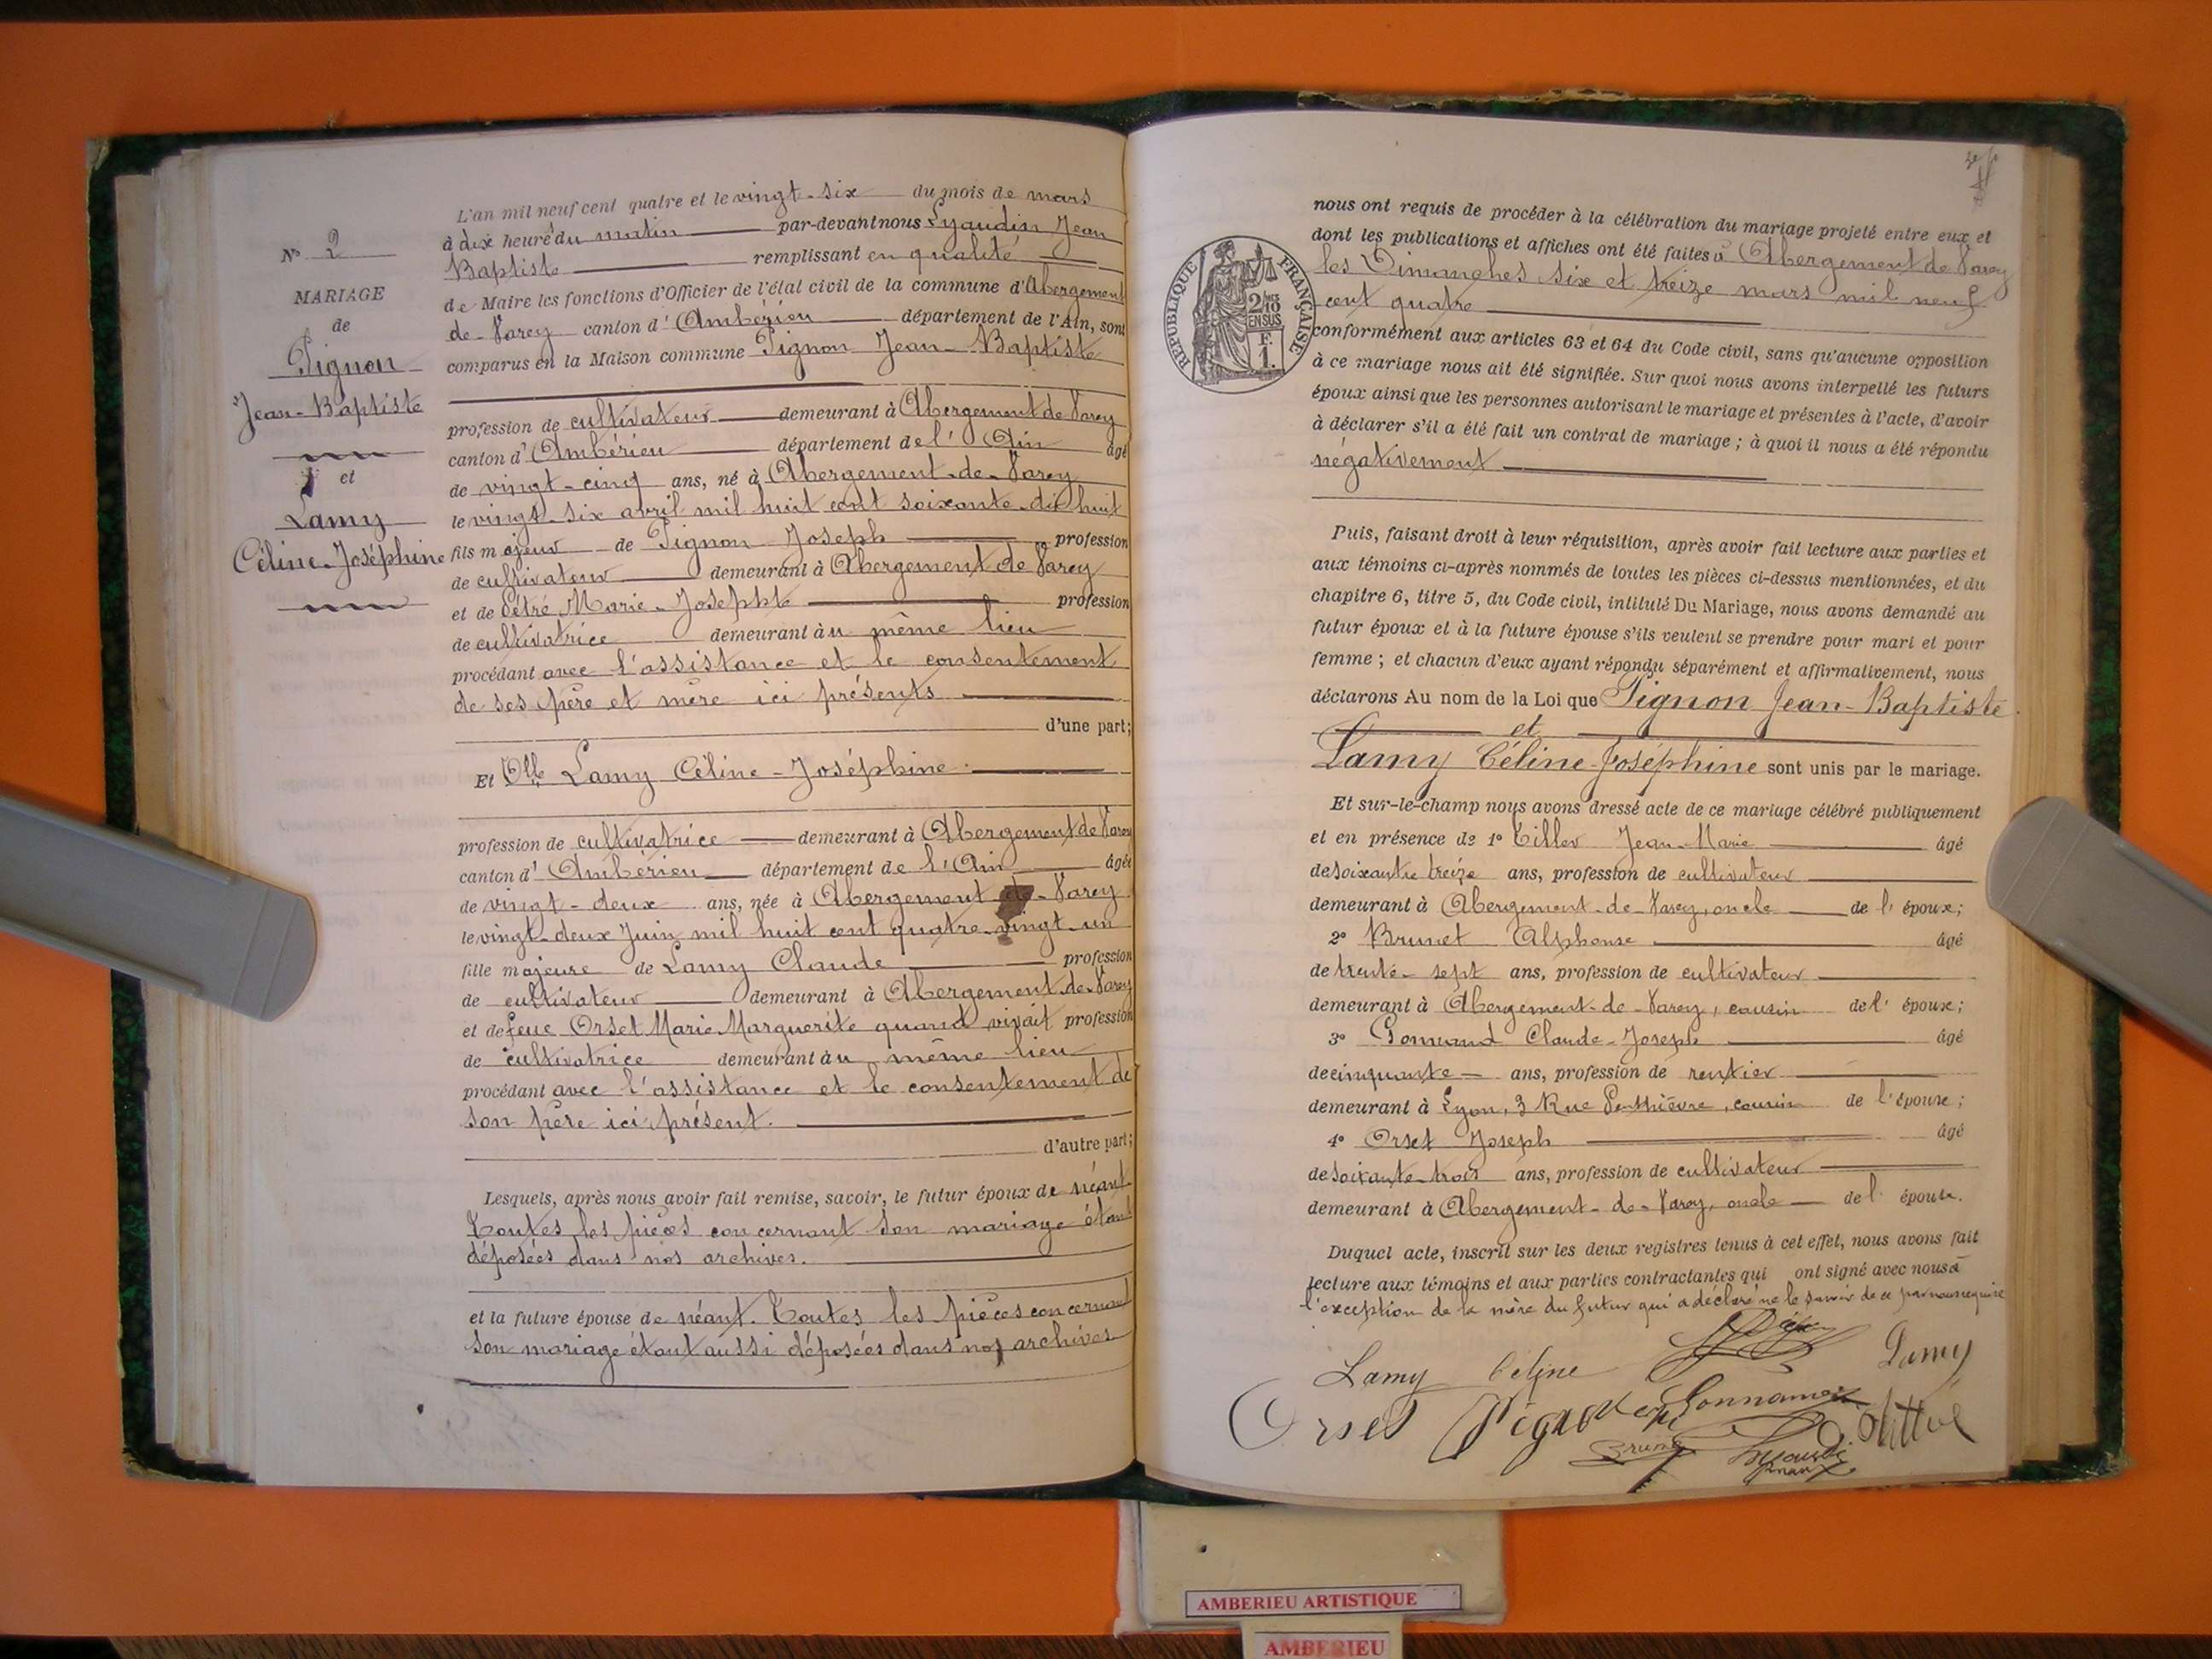 N° 2
MARIAGE
de
Pignon
Jean-Baptiste
et
Lamy
Céline-Joséphine
L'an mil neuf cent quatre et le vingt-six du mois de mars
à dix heure du matin par-devant nous Lyaudin Jean
Baptiste remplissant en qualité
de Maire les fonctions d'Officier de l'état civil de la commune d'Abergement
de-Varey canton d'Ambérieu département de l'Ain, sont
comparus en la Maison commune Pignon Jean-Baptiste
profession de cultivateur demeurant à Abergement de Varey
canton d'Ambérieu département de l'Ain âgé
de vingt-cinq ans, né à Abergement-de-Varey
le vingt-six avril mil huit cent soixante-dix huit
fils majeur de Pignon Joseph profession
de cultivateur demeurant à Abergement de Varey
et de Marie-Josephte profession
de cultivatrice demeurant au même lieu
procédant avec l'assistance et le consentement
de ses père et mère ici présents
d'une part;
Et Dlle Lamy Céline-Joséphine
profession de cultivatrice demeurant à Abergement de Varey
canton d'Ambérieu département de l'Ain âgée
de vingt-deux ans, née à Abergement de-Varey
le vingt-deux Juin mil huit cent quatre-vingt-un
fille majeure de Lamy Claude profession
de cultivateur demeurant à Abergement de Varey
et de feue Orset Marie Marguerite quand vivait profession
de cultivatrice demeurant au même lieu
procédant avec l'assistance et le consentement de
son père ici présent.
d'autre part;
Lesquels, après nous avoir fait remise, savoir, le futur époux de néant
Toutes les pièces concernant son mariage étant
déposées dans nos archives.
et la future épouse de néant. Toutes les pièces concernant
son mariage étant aussi déposées dans nos archives
nous ont requis de procéder à la célébration du mariage projeté entre eux et
dont les publications et affiches ont été faites à Abergement de Varey
les Dimanches six et treize mars mil neuf
cent quatre
RÉPUBLIQUE FRANÇAISE
2/10 EN SUS
1 F.
conformément aux articles 63 et 64 du Code civil, sans qu'aucune opposition
à ce mariage nous ait été signifiée. Sur quoi nous avons interpellé les futurs
époux ainsi que les personnes autorisant le mariage et présentes à l'acte, d'avoir
à déclarer s'il a été fait un contrat de mariage; à quoi il nous a été répondu
négativement
Puis, faisant droit à leur réquisition, après avoir fait lecture aux parties et
aux témoins ci-après nommés de toutes les pièces ci-dessus mentionnées, et du
chapitre 6, titre 5, du Code civil, intitulé Du Mariage, nous avons demandé au
futur époux et à la future épouse s'ils veulent se prendre pour mari et pour
femme; et chacun d'eux ayant répondu séparément et affirmativement, nous
déclarons Au nom de la Loi que Pignon Jean-Baptiste
et
Lamy Céline-Joséphine sont unis par le mariage.
Et sur-le-champ nous avons dressé acte de ce mariage célébré publiquement
et en présence de 1° Jean-Marie âgé
de soixante treize ans, profession de cultivateur
demeurant à Abergement-de-Varey, oncle de l'époux;
2° Brunet Alphonse âgé
de trente-sept ans, profession de cultivateur
demeurant à Abergement-de-Varey, cousin de l'époux;
3° Claude-Joseph âgé
de cinquante ans, profession de rentier
demeurant à Lyon, 3 Rue Penthièvre, cousin de l'épouse;
4° Orset Joseph âgé
de soixante-trois ans, profession de cultivateur
demeurant à Abergement-de-Varey, oncle de l'épouse.
Duquel acte, inscrit sur les deux registres tenus à cet effet, nous avons fait
lecture aux témoins et aux parties contractantes qui ont signé avec nous à
l'exception de la mère du futur qui a déclaré ne le savoir de ce par nous requise
Lamy Céline
Lamy
Orset
AMBERIEU ARTISTIQUE
AMBERIEU